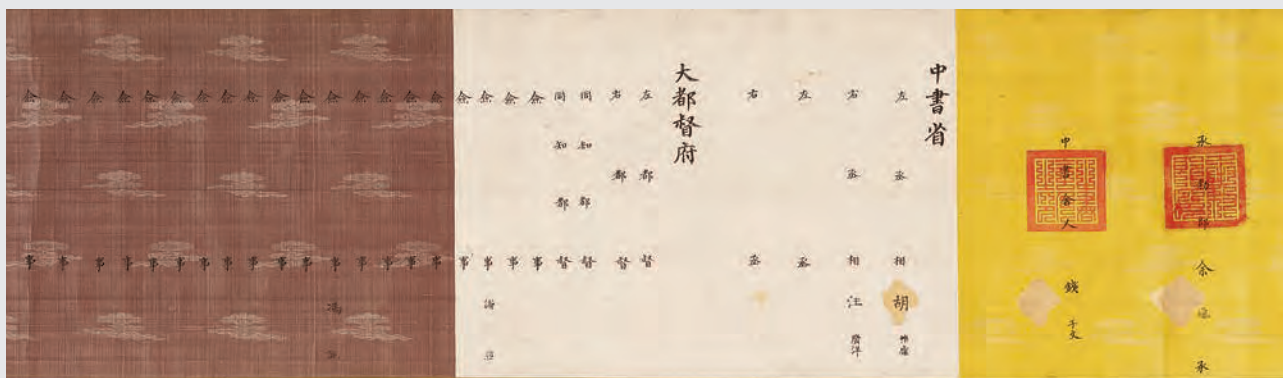 承勑郎余 承
中書舍人 錢子文
中書省
左丞相 胡惟庸
右丞相 汪廣洋
左丞
右丞
大都督府
左都督
右都督
同知都督
同知都督
僉事
僉事
僉事 謝
僉事
僉事
僉事
僉事
僉事
僉事 馮
僉事
僉事
僉事
僉事
僉事
僉事
僉事
僉事
僉事
僉事
僉事